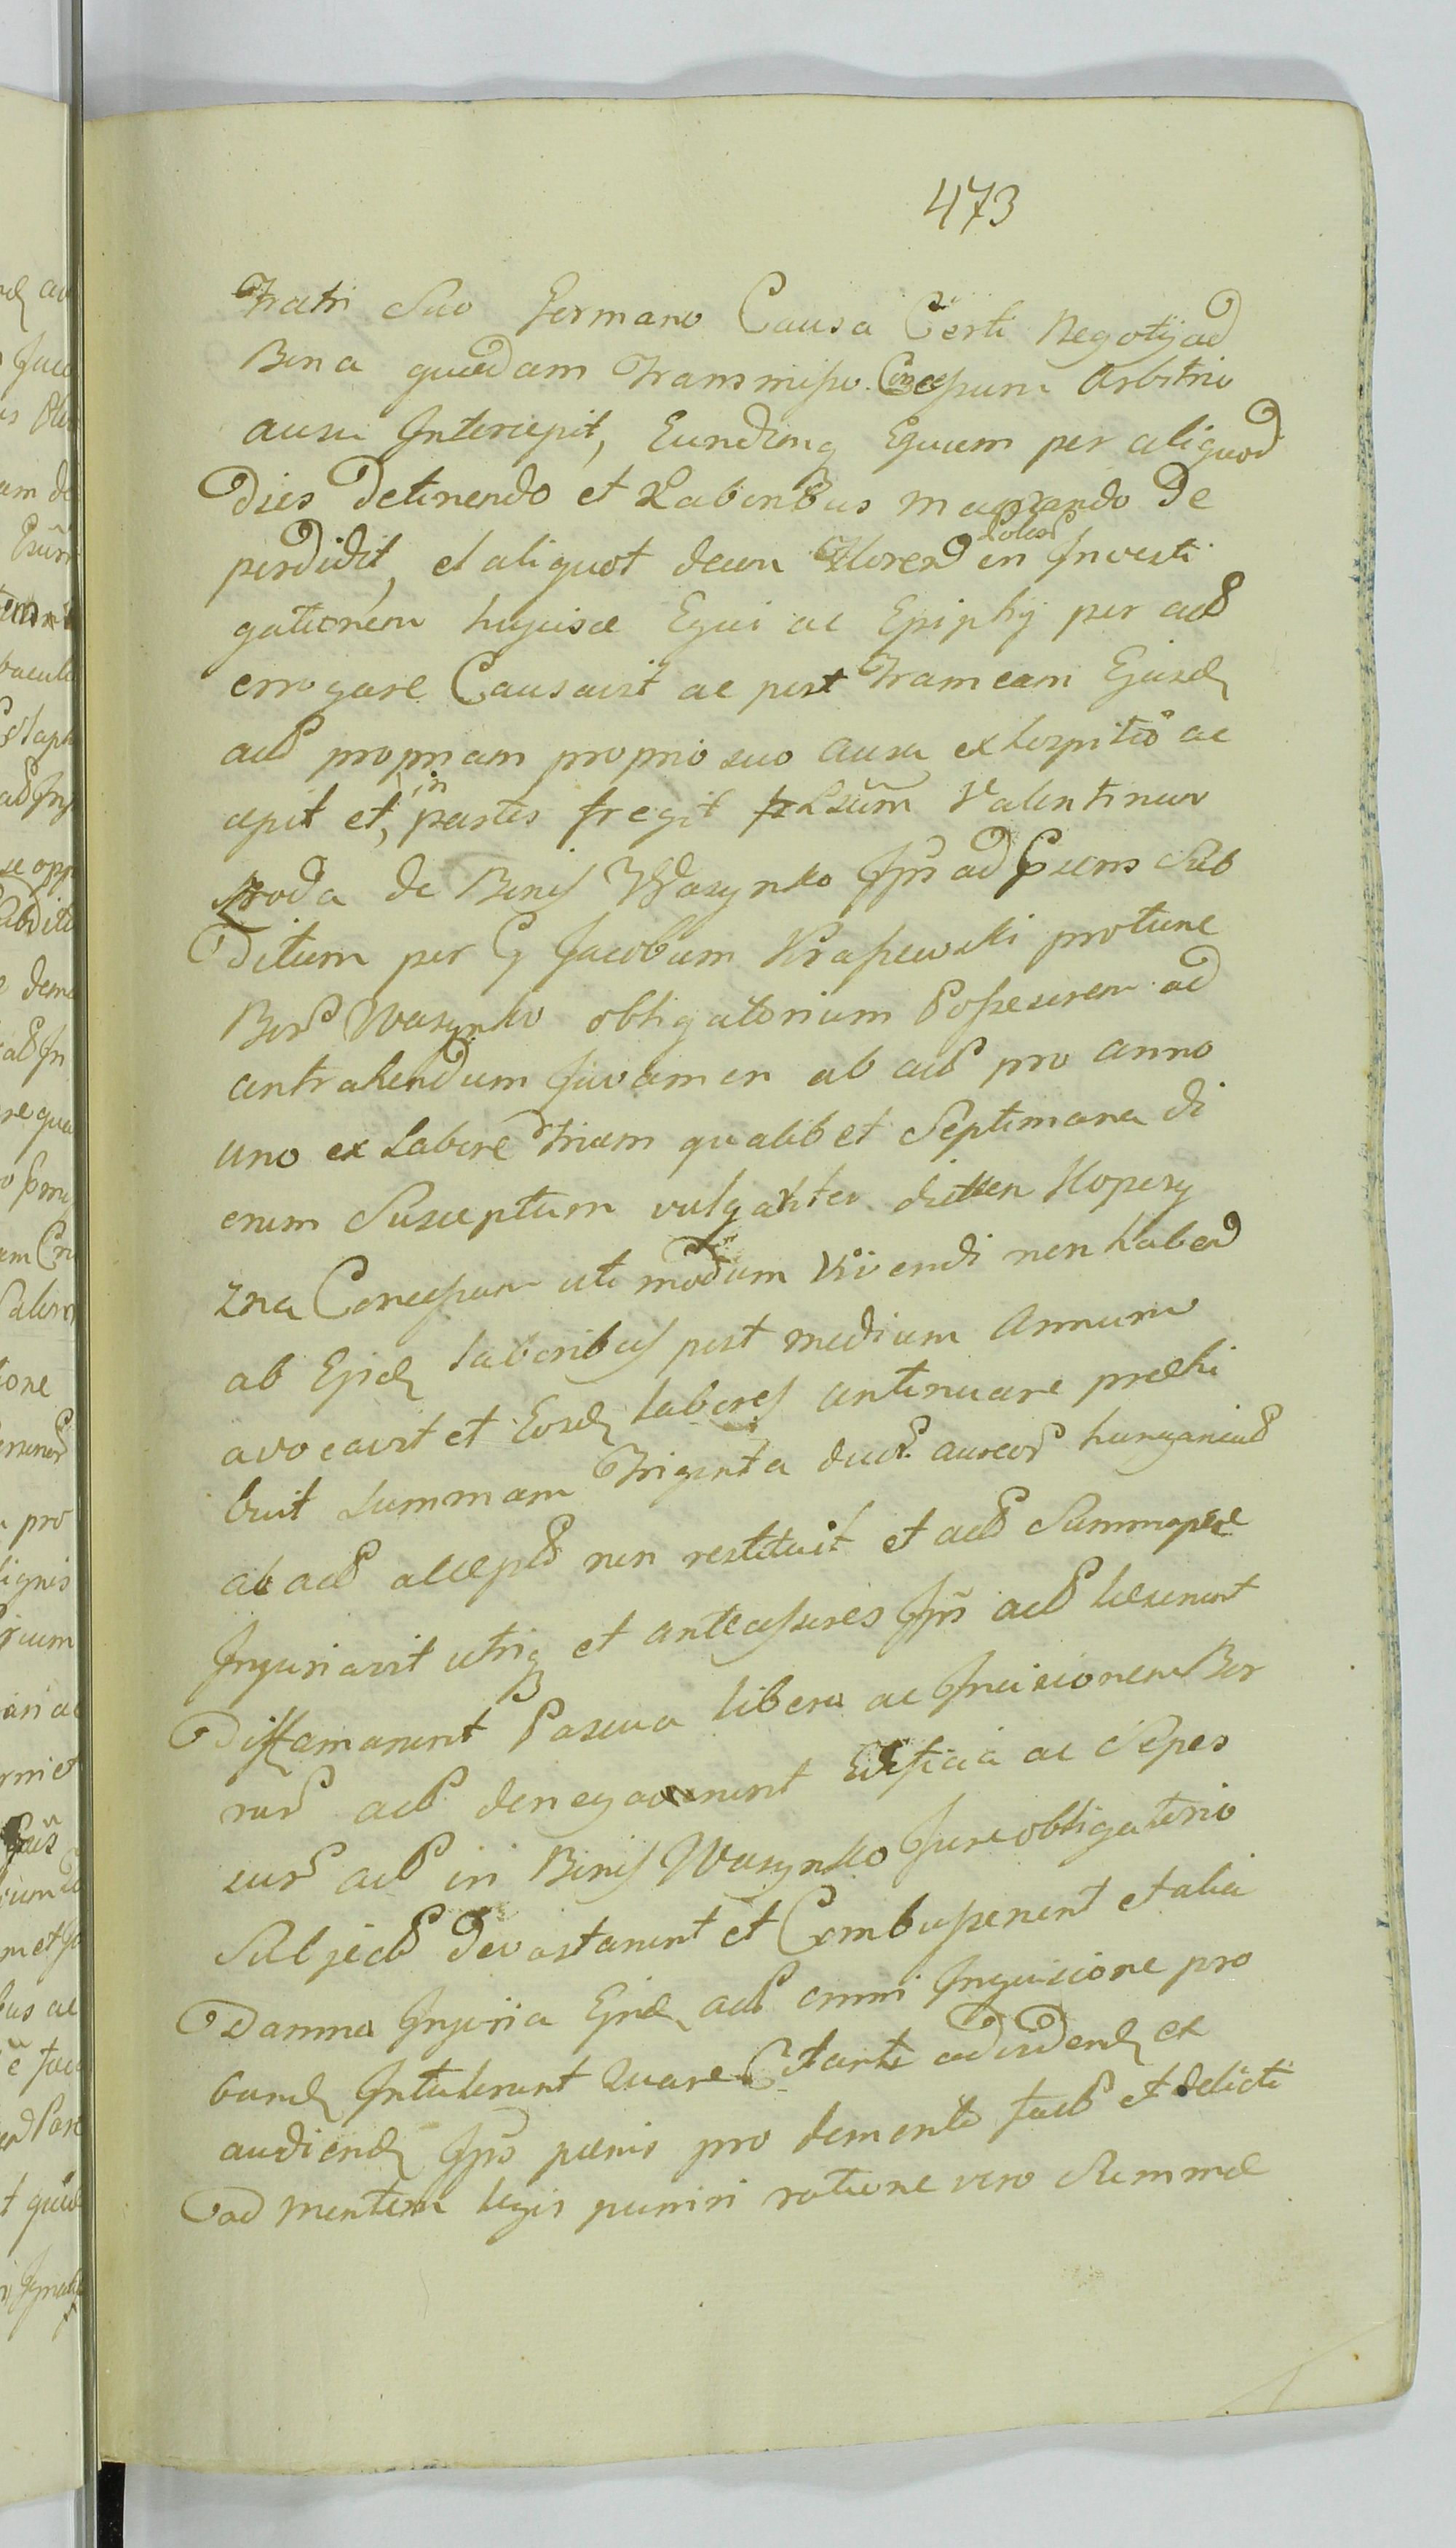 473
Fratri Suo Germano Causa Certi Negotij ad
Bona quædam Transmisso Concessum Arbitrio
ausu Intercepit, Eundemq Equum per aliquod
Dies Detinendo et Laboribus macerando De
perdidit, et aliquot decem Floren polon in Investi
gationem hujusce Equi ac Epiphij per actt
errogare Causavit ac post Frameam Ejusd
actt propriam proprio suo Ausu ex hospitio ac
cepit et, in partes fregit Valentinum
de Bonis Wasynko Ipsi ad Sub
Ditum per G Jacobum Krassewski protunc
Bor Wasynko obligatorium Possesorem ad
contrahendum Juvamen ab actt pro anno
uno ex Labore trium qualibet Septimana di
erum Susceptum vulgariter dictum Kopczy
zna Concessum uti modum Vivendi non haben
ab Ejsd laboribus post medium Annum
avocavit et Eosd labores continuare prohi
buit Summam Triginta duor aureor hungarical
ab actt accepta non restituit et actt Summopere
Injuriavit utriq et antecessores Ipsi actt læserunt
Diffamarunt Pascua libera ac Incisionem Bor
rar actt denegaverunt Edificia ac Sepes
suas actt in Bonis Wasynko Jure obligatorio
Subject Devastarunt et Combusserunt et alia
Damna Injuria Ejusd actt omni Inquisicione pro
band Intulerunt Quare Citanti ad vidend et
audiend Ipsos pœnis pro demento facti et delicti
ad mentem legis puniri ratione vero Summæ